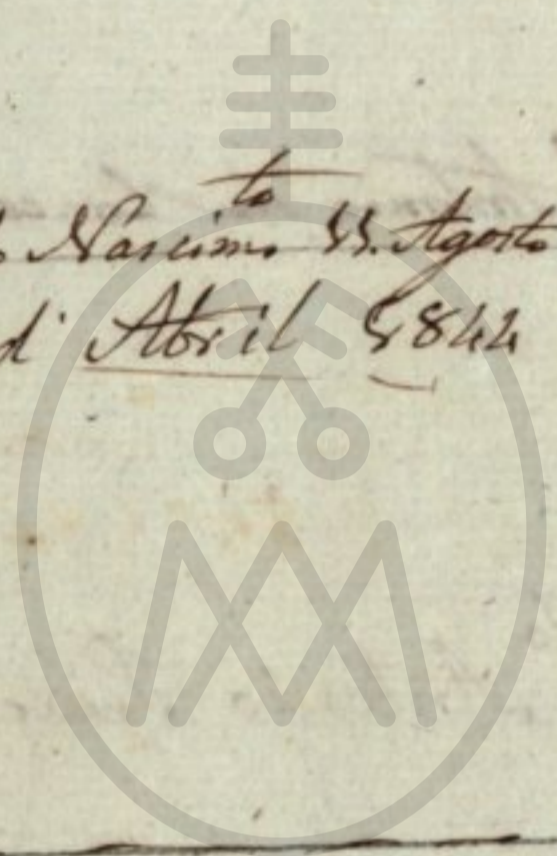 Nascim.to 11. Agosto
d' Abril 1844